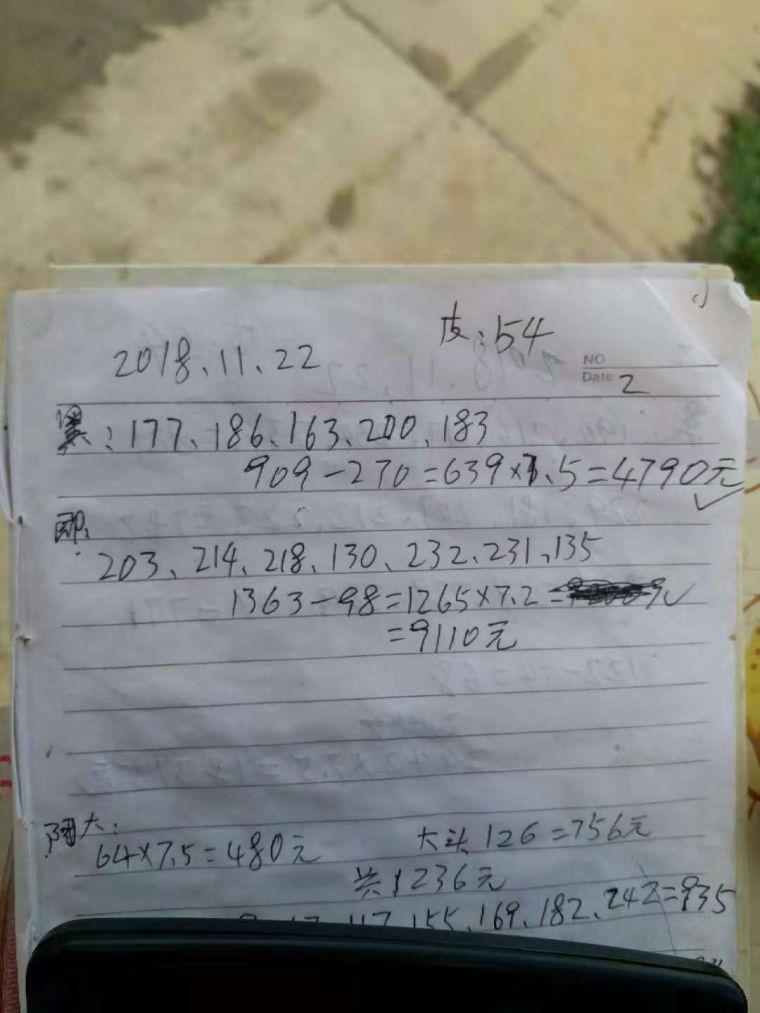 皮:54
2018.11.22
NO
Date 2
:177、186、163、200、183
909-270=639×7.5=4790元✓
203、214、218、130、232、231、135
1363-98=1265×7.2=
=9110元
阿大:
64×7.5=480元
大头126=756元
共1236元
117、155、169、182、242=935